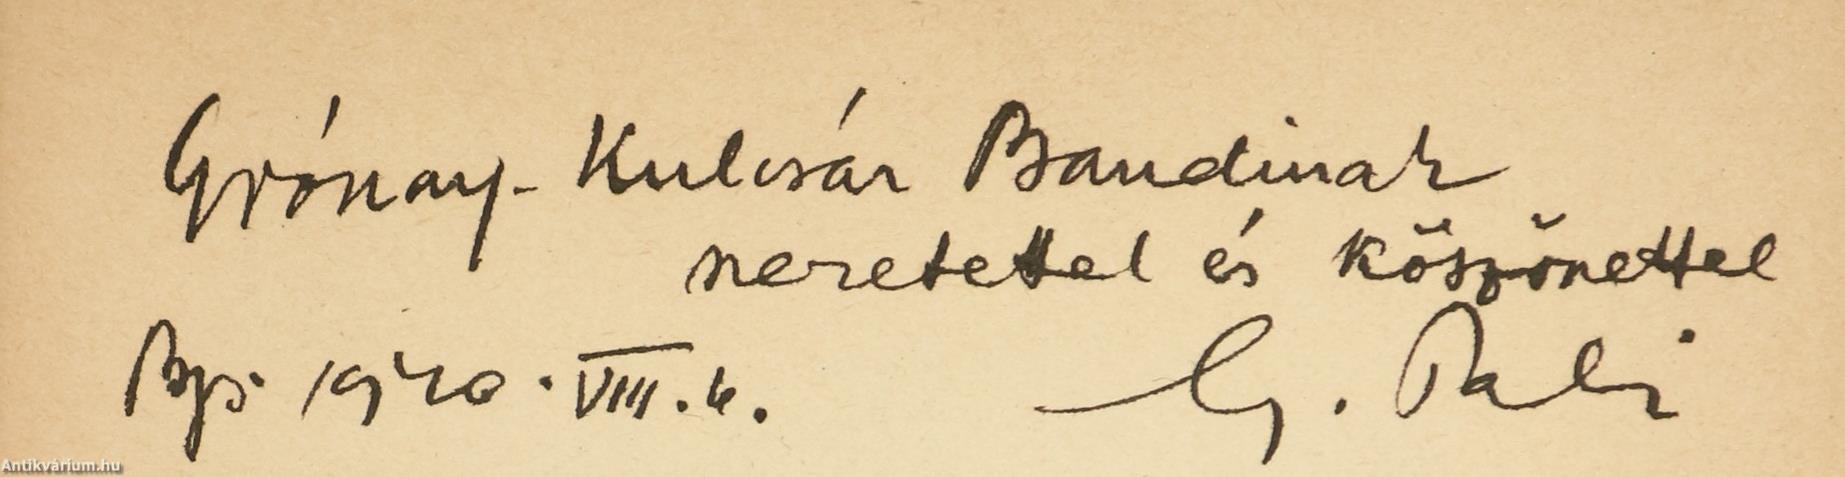 Kulcsár Bandinak
szeretettel és köszönettel
Bp. 1940. VIII.
G. Pali
Antikvárium.hu